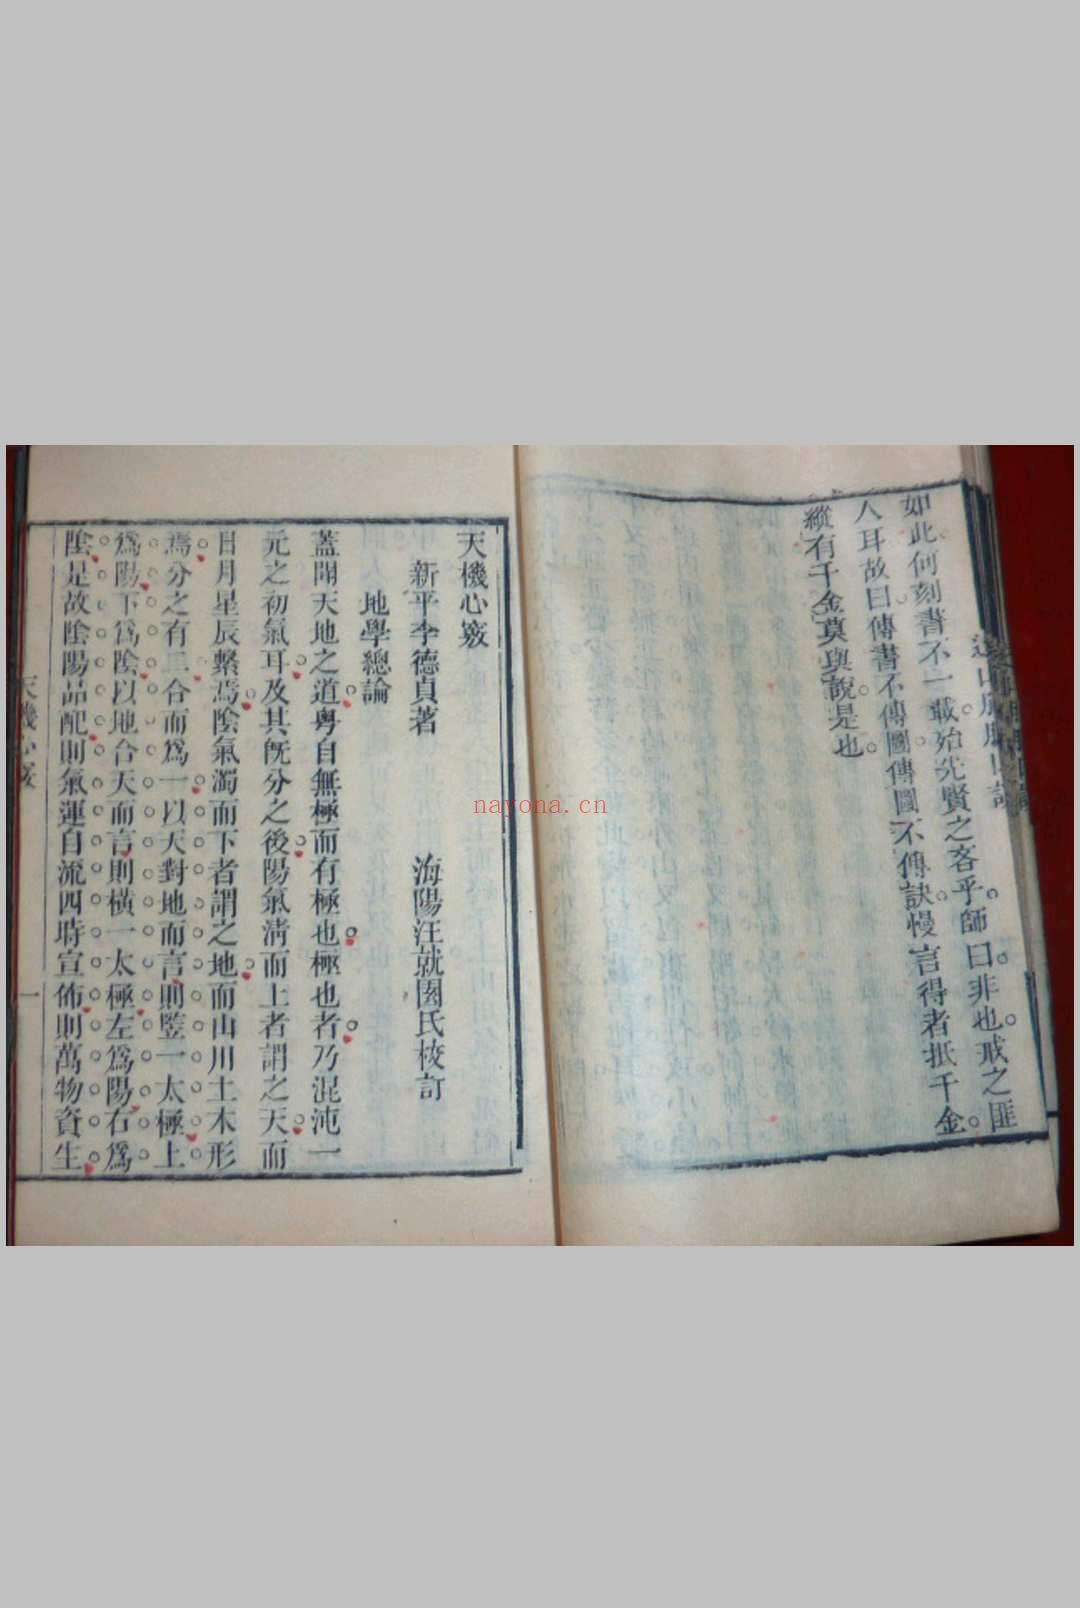 如此何刻書不一載始先賢之吝乎師曰非也戒之匪
人耳故曰傳書不傳圖傳圖不傳訣慢言得者抵千金
縱有千金莫與說是也
天機心竅
新平李德貞著 海陽汪就園氏校訂
地學總論
蓋聞天地之道粵自無極而有極也極也者乃混沌一
元之初氣耳及其旣分之後陽氣淸而上者謂之天而
日月星辰繫焉陰氣濁而下者謂之地而山川土木形
焉分之有二合而爲一以天對地而言則竪一太極上
爲陽下爲陰以地合天而言則橫一太極左爲陽右爲
陰是故陰陽品配則氣運自流四時宣佈則萬物資生
天機心竅
一
nayona.cn